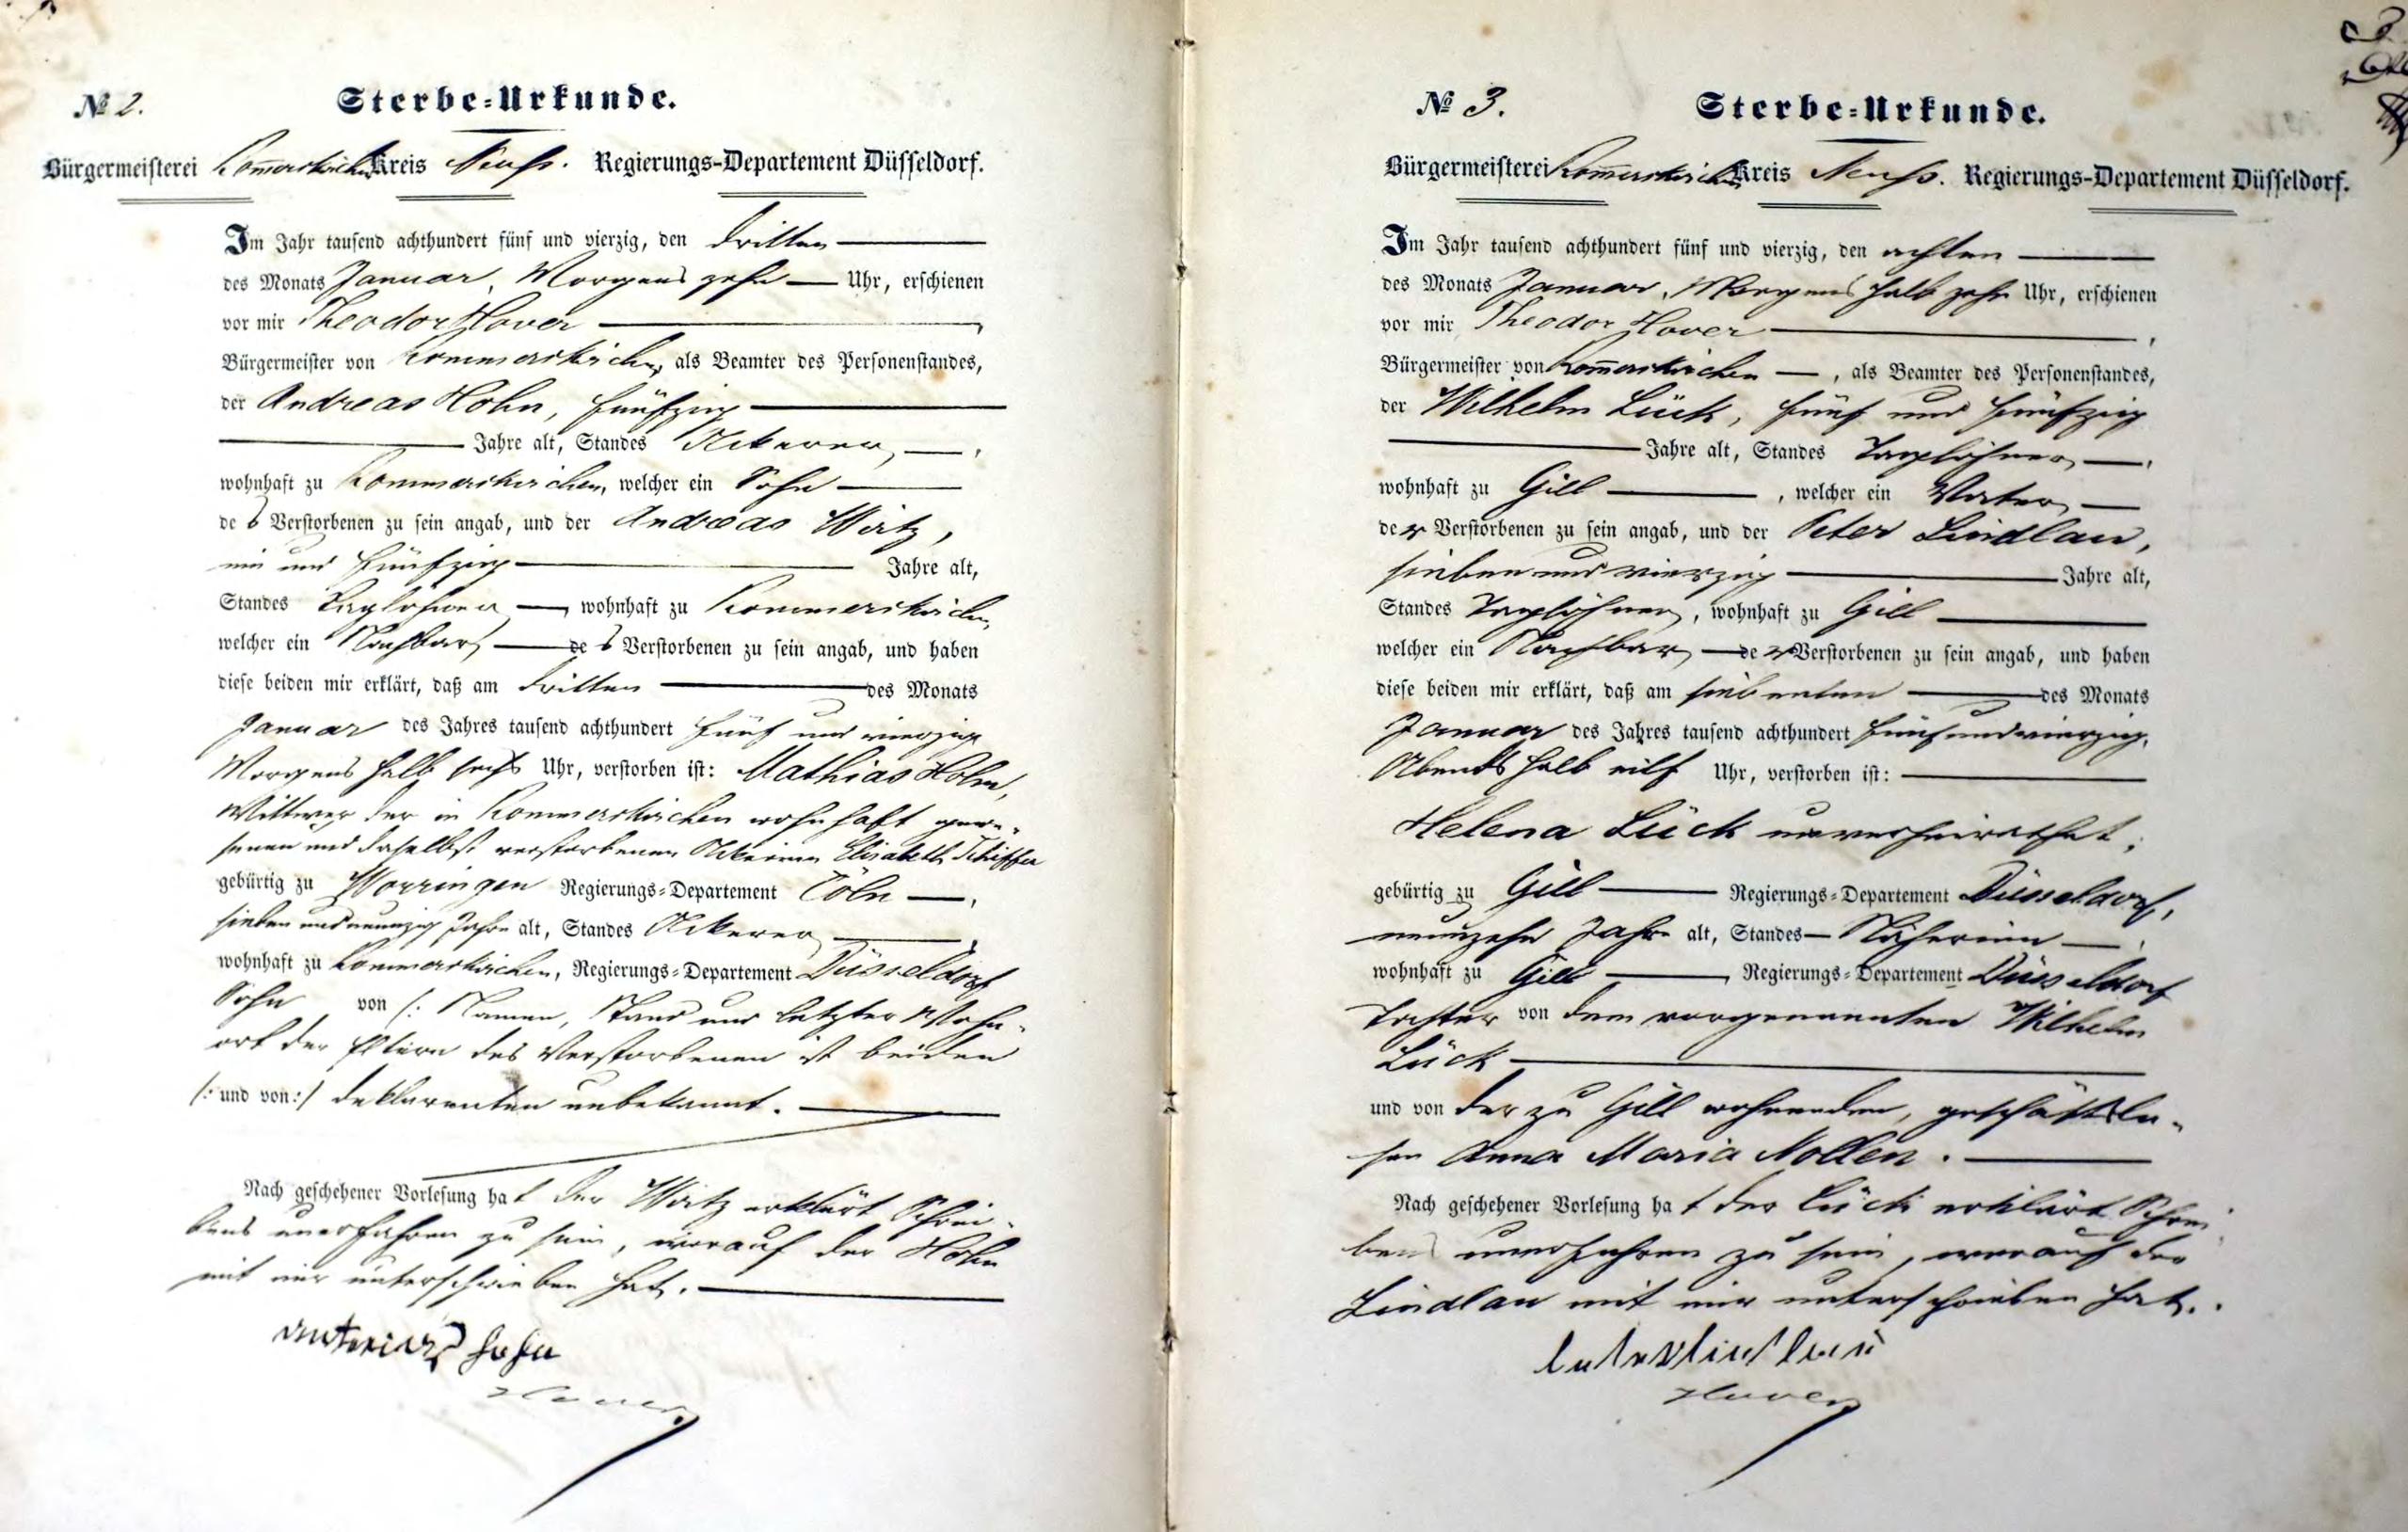 № 2.
Sterbe-Urkunde.
Bürgermeisterei Rom̄erskirchen Kreis Neuß. Regierungs-Departement Düsseldorf.
Im Jahr tausend achthundert fünf und vierzig, den dritten
des Monats Januar, Morgens zehn Uhr, erschienen
vor mir Theodor Hover,
Bürgermeister von Rommerskirchen, als Beamter des Personenstandes,
der Andreas Hohn, fünfzig
Jahre alt, Standes Ackerer,
wohnhaft zu Rommerskirchen, welcher ein Sohn
des Verstorbenen zu sein angab, und der Andreas Wirtz,
ein und fünfzig Jahre alt,
Standes Taglöhner, wohnhaft zu Rommerskirchen,
welcher ein Nachbar des Verstorbenen zu sein angab, und haben
diese beiden mir erklärt, daß am dritten des Monats
Januar des Jahres tausend achthundert fünf und vierzig
Morgens halb sechs Uhr, verstorben ist: Mathias Hohn,
Wittwer der in Rommerskirchen wohnhaft gewe-
senen und daselbst verstorbenen Ackerinn Elisabeth Schiffer
gebürtig zu Worringen Regierungs-Departement Cöln,
sieben und neunzig Jahre alt, Standes Ackerer
wohnhaft zu Rommerskirchen, Regierungs-Departement Düsseldorf
Sohn von /: Namen, Stand und letzter Wohn-
ort der Eltern des Verstorbenen ist beiden
/: und von :/ Deklaranten unbekannt.
Nach geschehener Vorlesung hat der Wirtz erklärt Schrei-
bens unerfahren zu sein, worauf der Hohn
mit mir unterschrieben hat.
Hohn
Hover
№ 3.
Sterbe-Urkunde.
Bürgermeisterei Rom̄erskirchen Kreis Neuß. Regierungs-Departement Düsseldorf.
Im Jahr tausend achthundert fünf und vierzig, den achten
des Monats Januar, Morgens halb zehn Uhr, erschienen
vor mir Theodor Hover,
Bürgermeister von Rom̄erskirchen, als Beamter des Personenstandes,
der Wilhelm Lück, fünf und fünfzig
Jahre alt, Standes Taglöhner,
wohnhaft zu Gill, welcher ein Vater
der Verstorbenen zu sein angab, und der Peter Lindlau,
sieben und vierzig Jahre alt,
Standes Taglöhner, wohnhaft zu Gill
welcher ein Nachbar der Verstorbenen zu sein angab, und haben
diese beiden mir erklärt, daß am siebenten des Monats
Januar des Jahres tausend achthundert fünfundvierzig,
Abends halb eilf Uhr, verstorben ist:
Helena Lück unverheirathet;
gebürtig zu Gill Regierungs-Departement Düsseldorf,
neunzehn Jahre alt, Standes Näherinn,
wohnhaft zu Gill Regierungs-Departement Düsseldorf
Tochter von dem vorgenannten Wilhelm
Lück
und von der zu Gill wohnenden, geschäftslo-
sen Anna Maria Nollen.
Nach geschehener Vorlesung hat der Lück erklärt Schrei
bens unerfahren zu sein, worauf der
Lindlau mit mir unterschrieben hat.
Hover